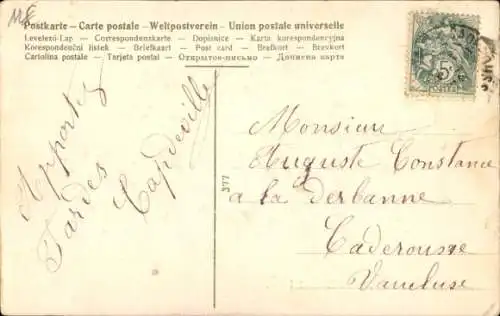 Postkarte – Carte postale – Weltpostverein – Union postale universelle
Levelezö-Lap — Correspondenzkarte — Dopisnice — Karta korespondencyjna
Korespondenční lístek — Briefkaart — Post card — Brefkort — Brevkort
Cartolina postale — Tarjeta postal — Открытое письмо — Дописна карта
5c
Apportez
Tardes
Capdeville
377
Monsieur
Auguste Constance
a la Derbanne
Caderousse
Vaucluse